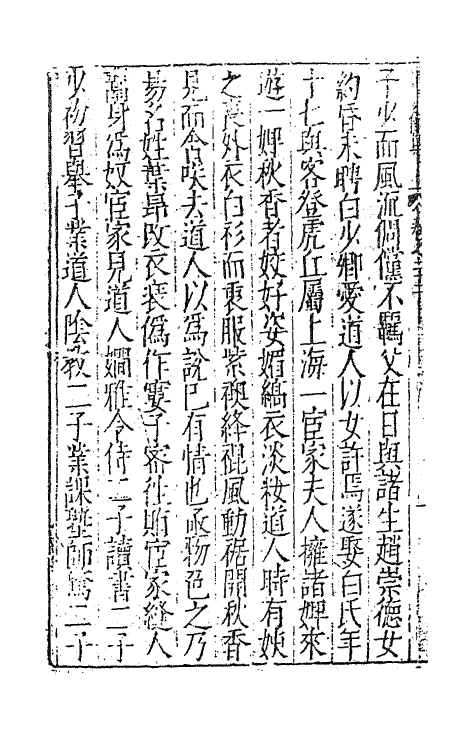 子少而風流倜儻不羈父在日與諸生趙崇德女
約昏未聘白少卿愛道人以女許焉遂娶白氏年
十七與客登虎丘屬上海一宦家夫人擁諸婢來
遊一婢秋香者姣好姿媚縞衣淡妝道人時有姨
之喪外衣白衫而裏服紫襖絳裩風動裾開秋香
見而含咲去道人以爲說己有情也亟物色之乃
易名姓葉昂改衣裝爲作窶子密往賄宦家縫人
鬻身爲奴宦家見道人嫺雅令侍二子讀書二子
少幼習舉子業道人陰教二子業課塾師驚二子